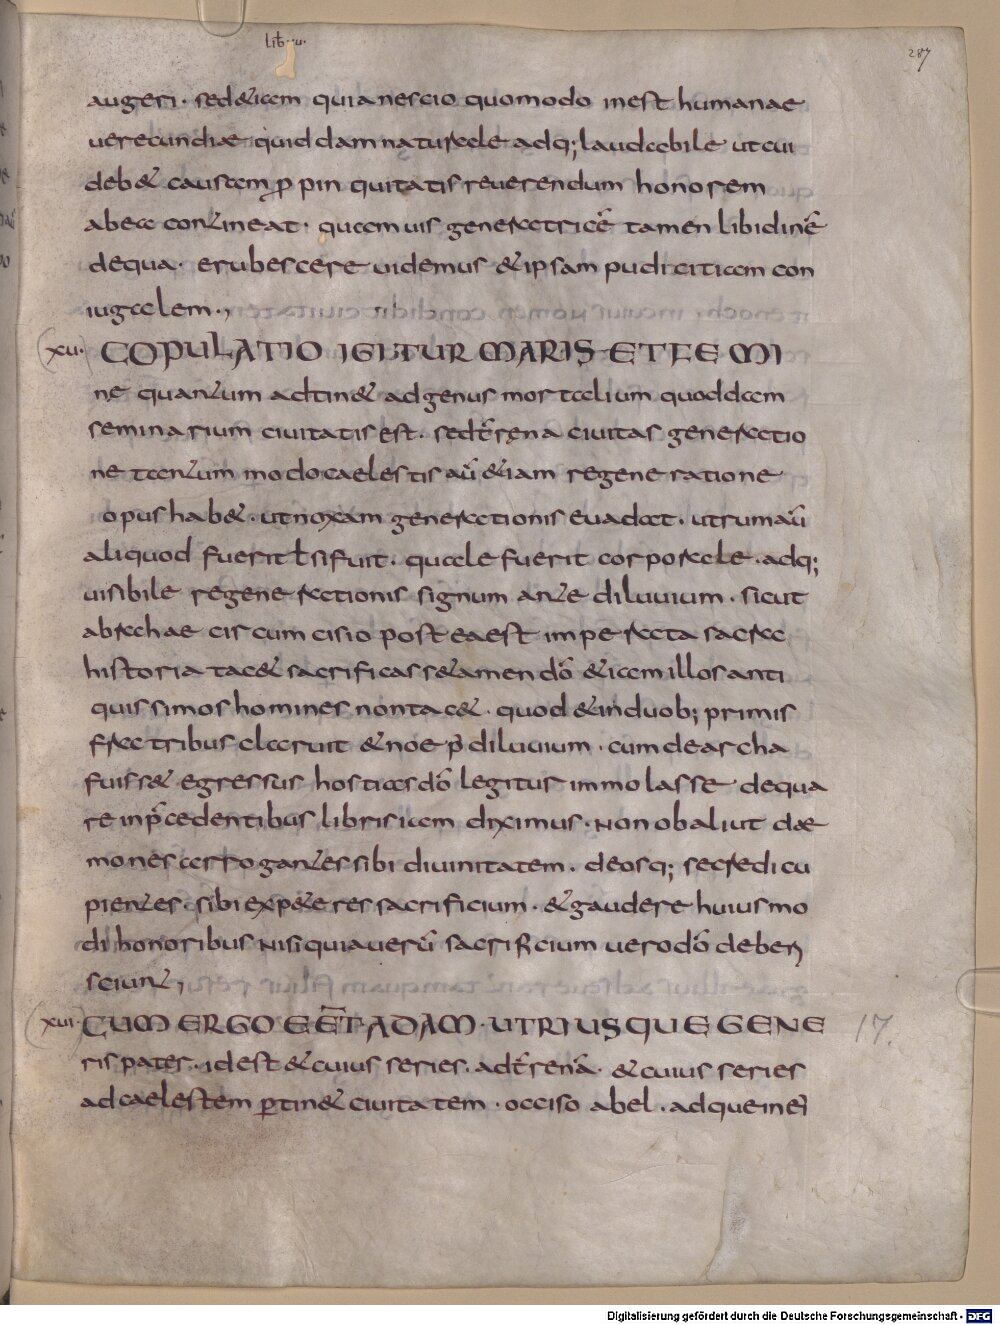 lib · u·
287
augeri · sed &iam quia nescio quomodo inest humanae
uerecundiae quiddam naturale adq; laudabile ut cui
deb& causam ꝓpinquitatis reuerendum honorem
abea contineat · quamuis generatricē tamen libidinē
dequa · erubescere uidemus &ipsam pudicitiam con
iugalem ·,
xu· COPULATIO IGITUR MARIS ET FEMI
ne quantum adtin& adgenus mortalium quoddam
seminarium ciuitatis est · sed t̄rena ciuitas generatio
ne tantum modo caelestis aū &iam regeneratione
opus hab& · ut noxam generationis euadat · utrum aū
aliquod fuerit ł si fuit · quale fuerit corporale · adq;
uisibile regenerationis signum ante diluuium · sicut
abrahae circumcisio postea est imperata sacra
historia tac& sacrificasse tamen dō &iam illos anti
quissimos homines non tac& · quod &induob; primis
fratribus claruit &noe p̄ diluuium · cum dearcha
fuiss& egressus hostias dō legitur immolasse dequa
re inp̄cedentibus libris iam diximus · Non ob aliut dae
mones arrogantes sibi diuinitatem · deosq; se credi cu
pientes · sibi exp&ere sacrificium · &gaudere huiusmo
di honoribus Nisi quia uerū sacrificium uero dō deberi
sciunt ,
xui· CUM ERGO EĒT ADAM · UTRIUSQUE GENE
17.
ris pater · id est &cuius series · ad t̄renā · &cuius series
ad caelestem ꝑtin& ciuitatem · occiso abel · adque inei
Digitalisierung gefördert durch die Deutsche Forschungsgemeinschaft - DFG